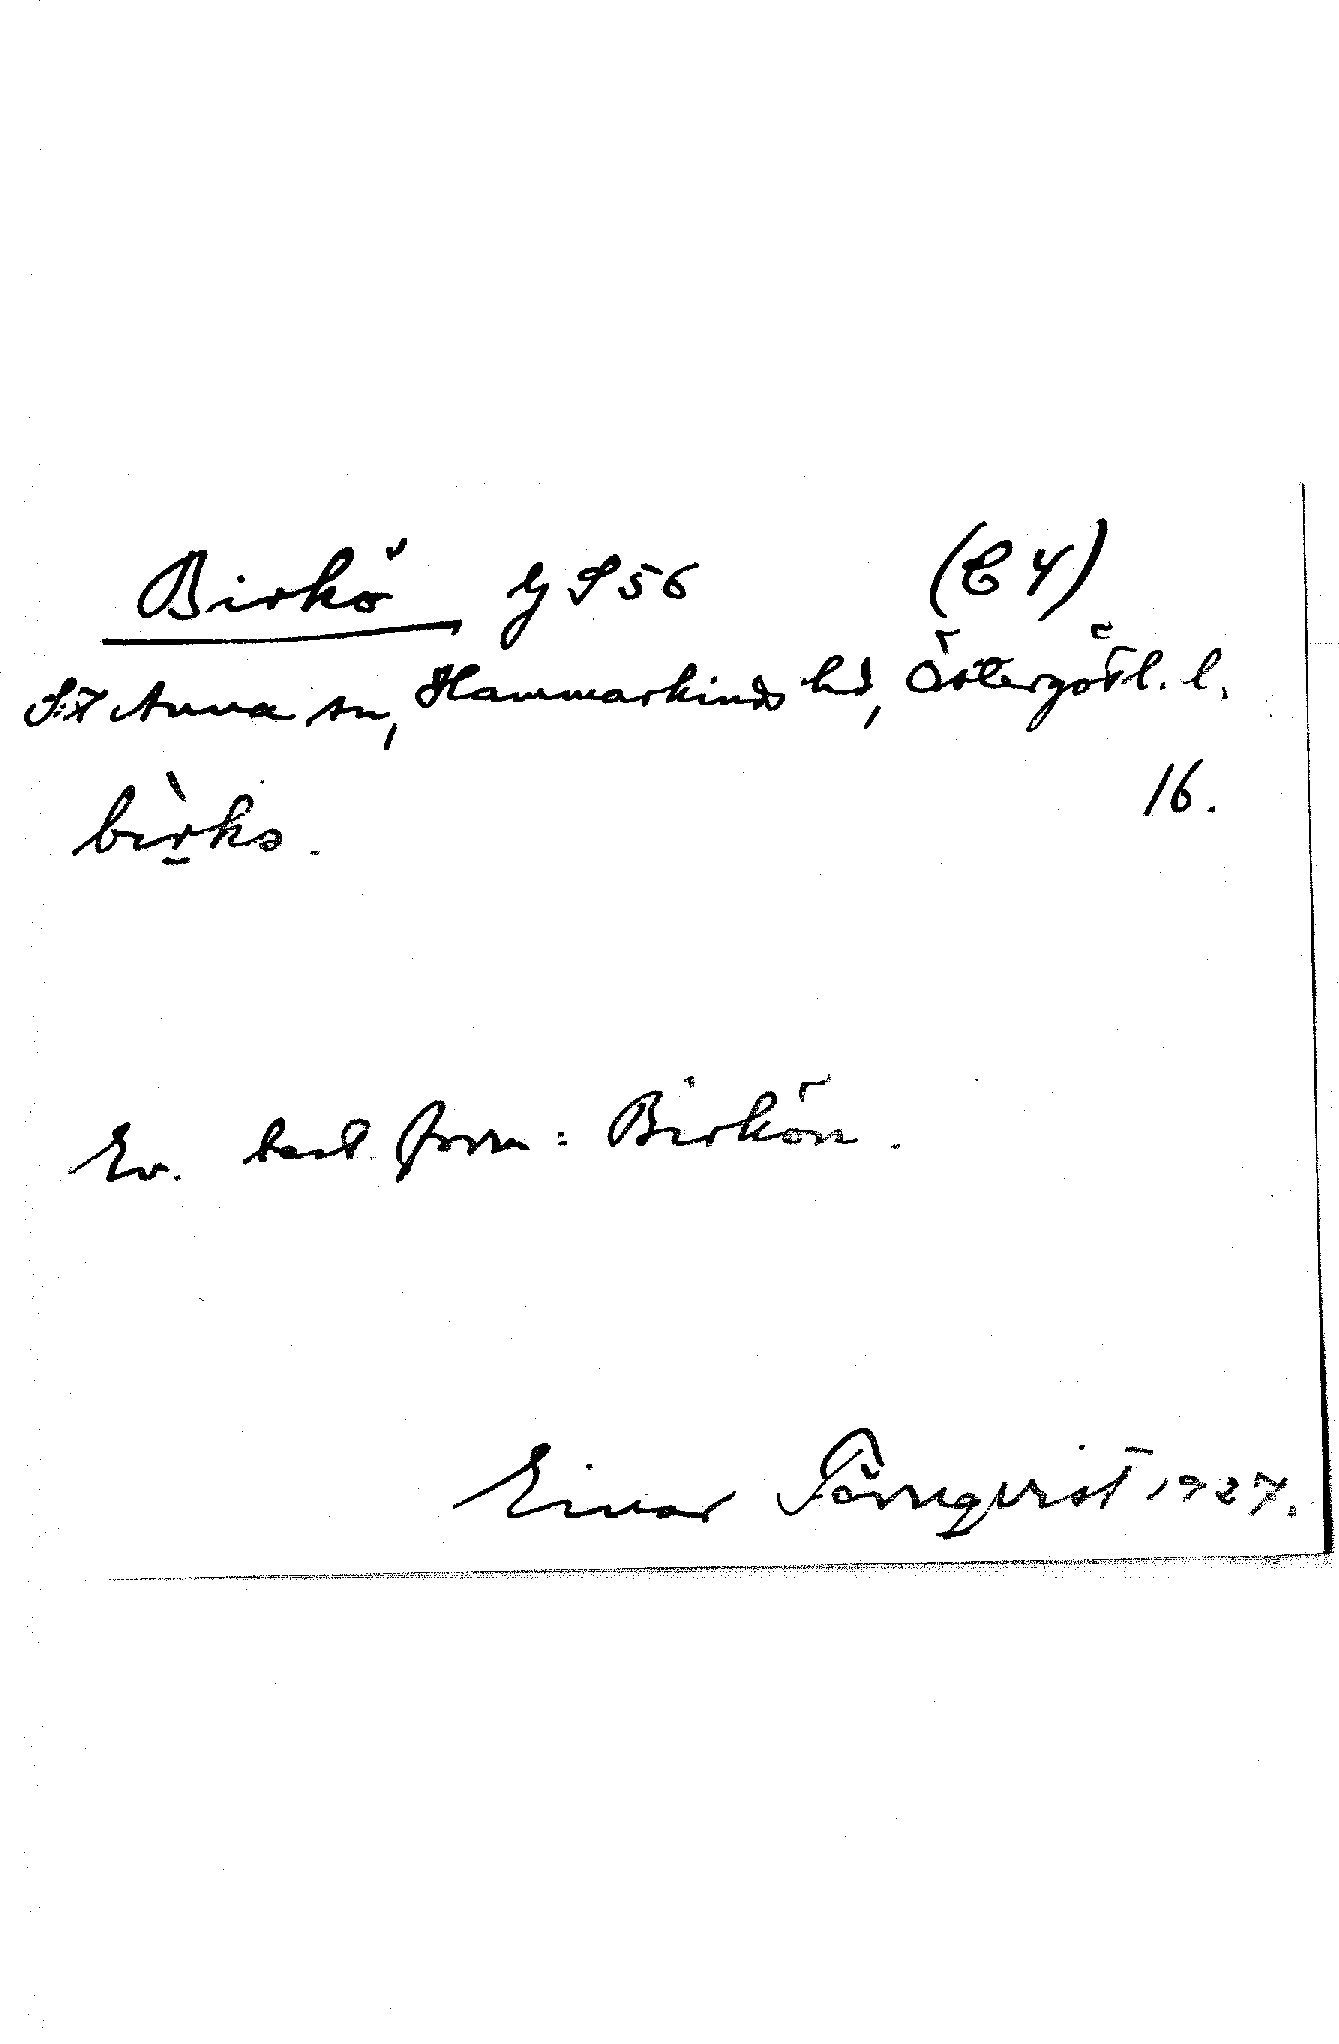 Birkö lj S 56 (C 4)
S:t Anna sn, Hammarkinds hd, Östergötl. l.
16.
bìrkə.
Ev. best form: Birkön.
Einar Törnqvist 1927.